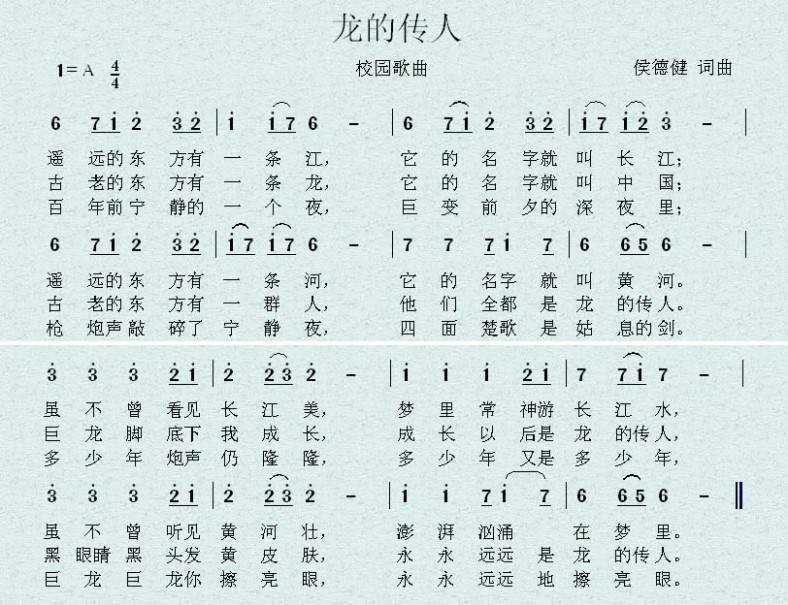 龙的传人
1=A 4/4 校园歌曲 侯德健 词曲
6 7 1 2 3 2 | 1 1 7 6 - | 6 7 1 2 3 2 | 1 7 1 2 3 - |
遥 远的东 方有 一 条 江， 它 的 名 字就 叫 长 江；
古 老的东 方有 一 条 龙， 它 的 名 字就 叫 中 国；
百 年前宁 静的 一 个 夜， 巨 变 前 夕的 深 夜 里；
6 7 1 2 3 2 | 1 7 1 7 6 - | 7 7 7 1 7 | 6 6 5 6 - |
遥 远的东 方有 一 条 河， 它 的 名字 就 叫 黄 河。
古 老的东 方有 一 群 人， 他 们 全都 是 龙 的传人。
枪 炮声敲 碎了 宁 静 夜， 四 面 楚歌 是 姑 息的剑。
3 3 3 2 1 | 2 2 3 2 - | 1 1 1 2 1 | 7 7 1 7 - |
虽 不 曾 看见 长 江 美， 梦 里 常 神游 长 江 水，
巨 龙 脚 底下 我 成 长， 成 长 以 后是 龙 的传人，
多 少 年 炮声 仍 隆 隆， 多 少 年 又是 多 少 年，
3 3 3 2 1 | 2 2 3 2 - | 1 1 7 1 7 | 6 6 5 6 - ||
虽 不 曾 听见 黄 河 壮， 澎 湃 汹涌 在 梦 里。
黑 眼睛 黑 头发 黄 皮 肤， 永 永 远远 是 龙 的传人。
巨 龙 巨 龙你 擦 亮 眼， 永 永 远远 地 擦 亮 眼。